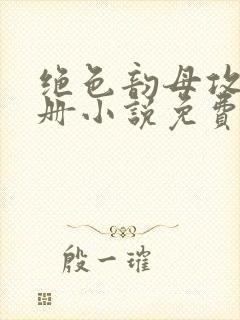 绝色韵母攻
册小说免费
殷一璀